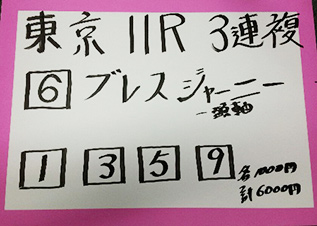 東京 11R 3連複
6 ブレスジャーニー
一頭軸
1 3 5 9
各1000円
計6000円